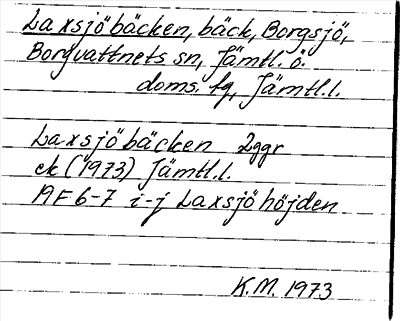 Laxsjöbäcken, bäck, Borgsjö,
Borgvattnets sn, Jämtl. ö.
doms. fg, Jämtl.l.
Laxsjöbäcken 2ggr
ek (1973) Jämtl.l.
AF 6-7 i-j Laxsjöhöjden
K.M. 1973